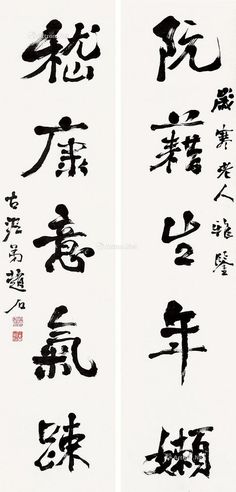 歲寒老人雅鑒
阮藉生年嬾
嵇康意氣踈
古泥弟趙石